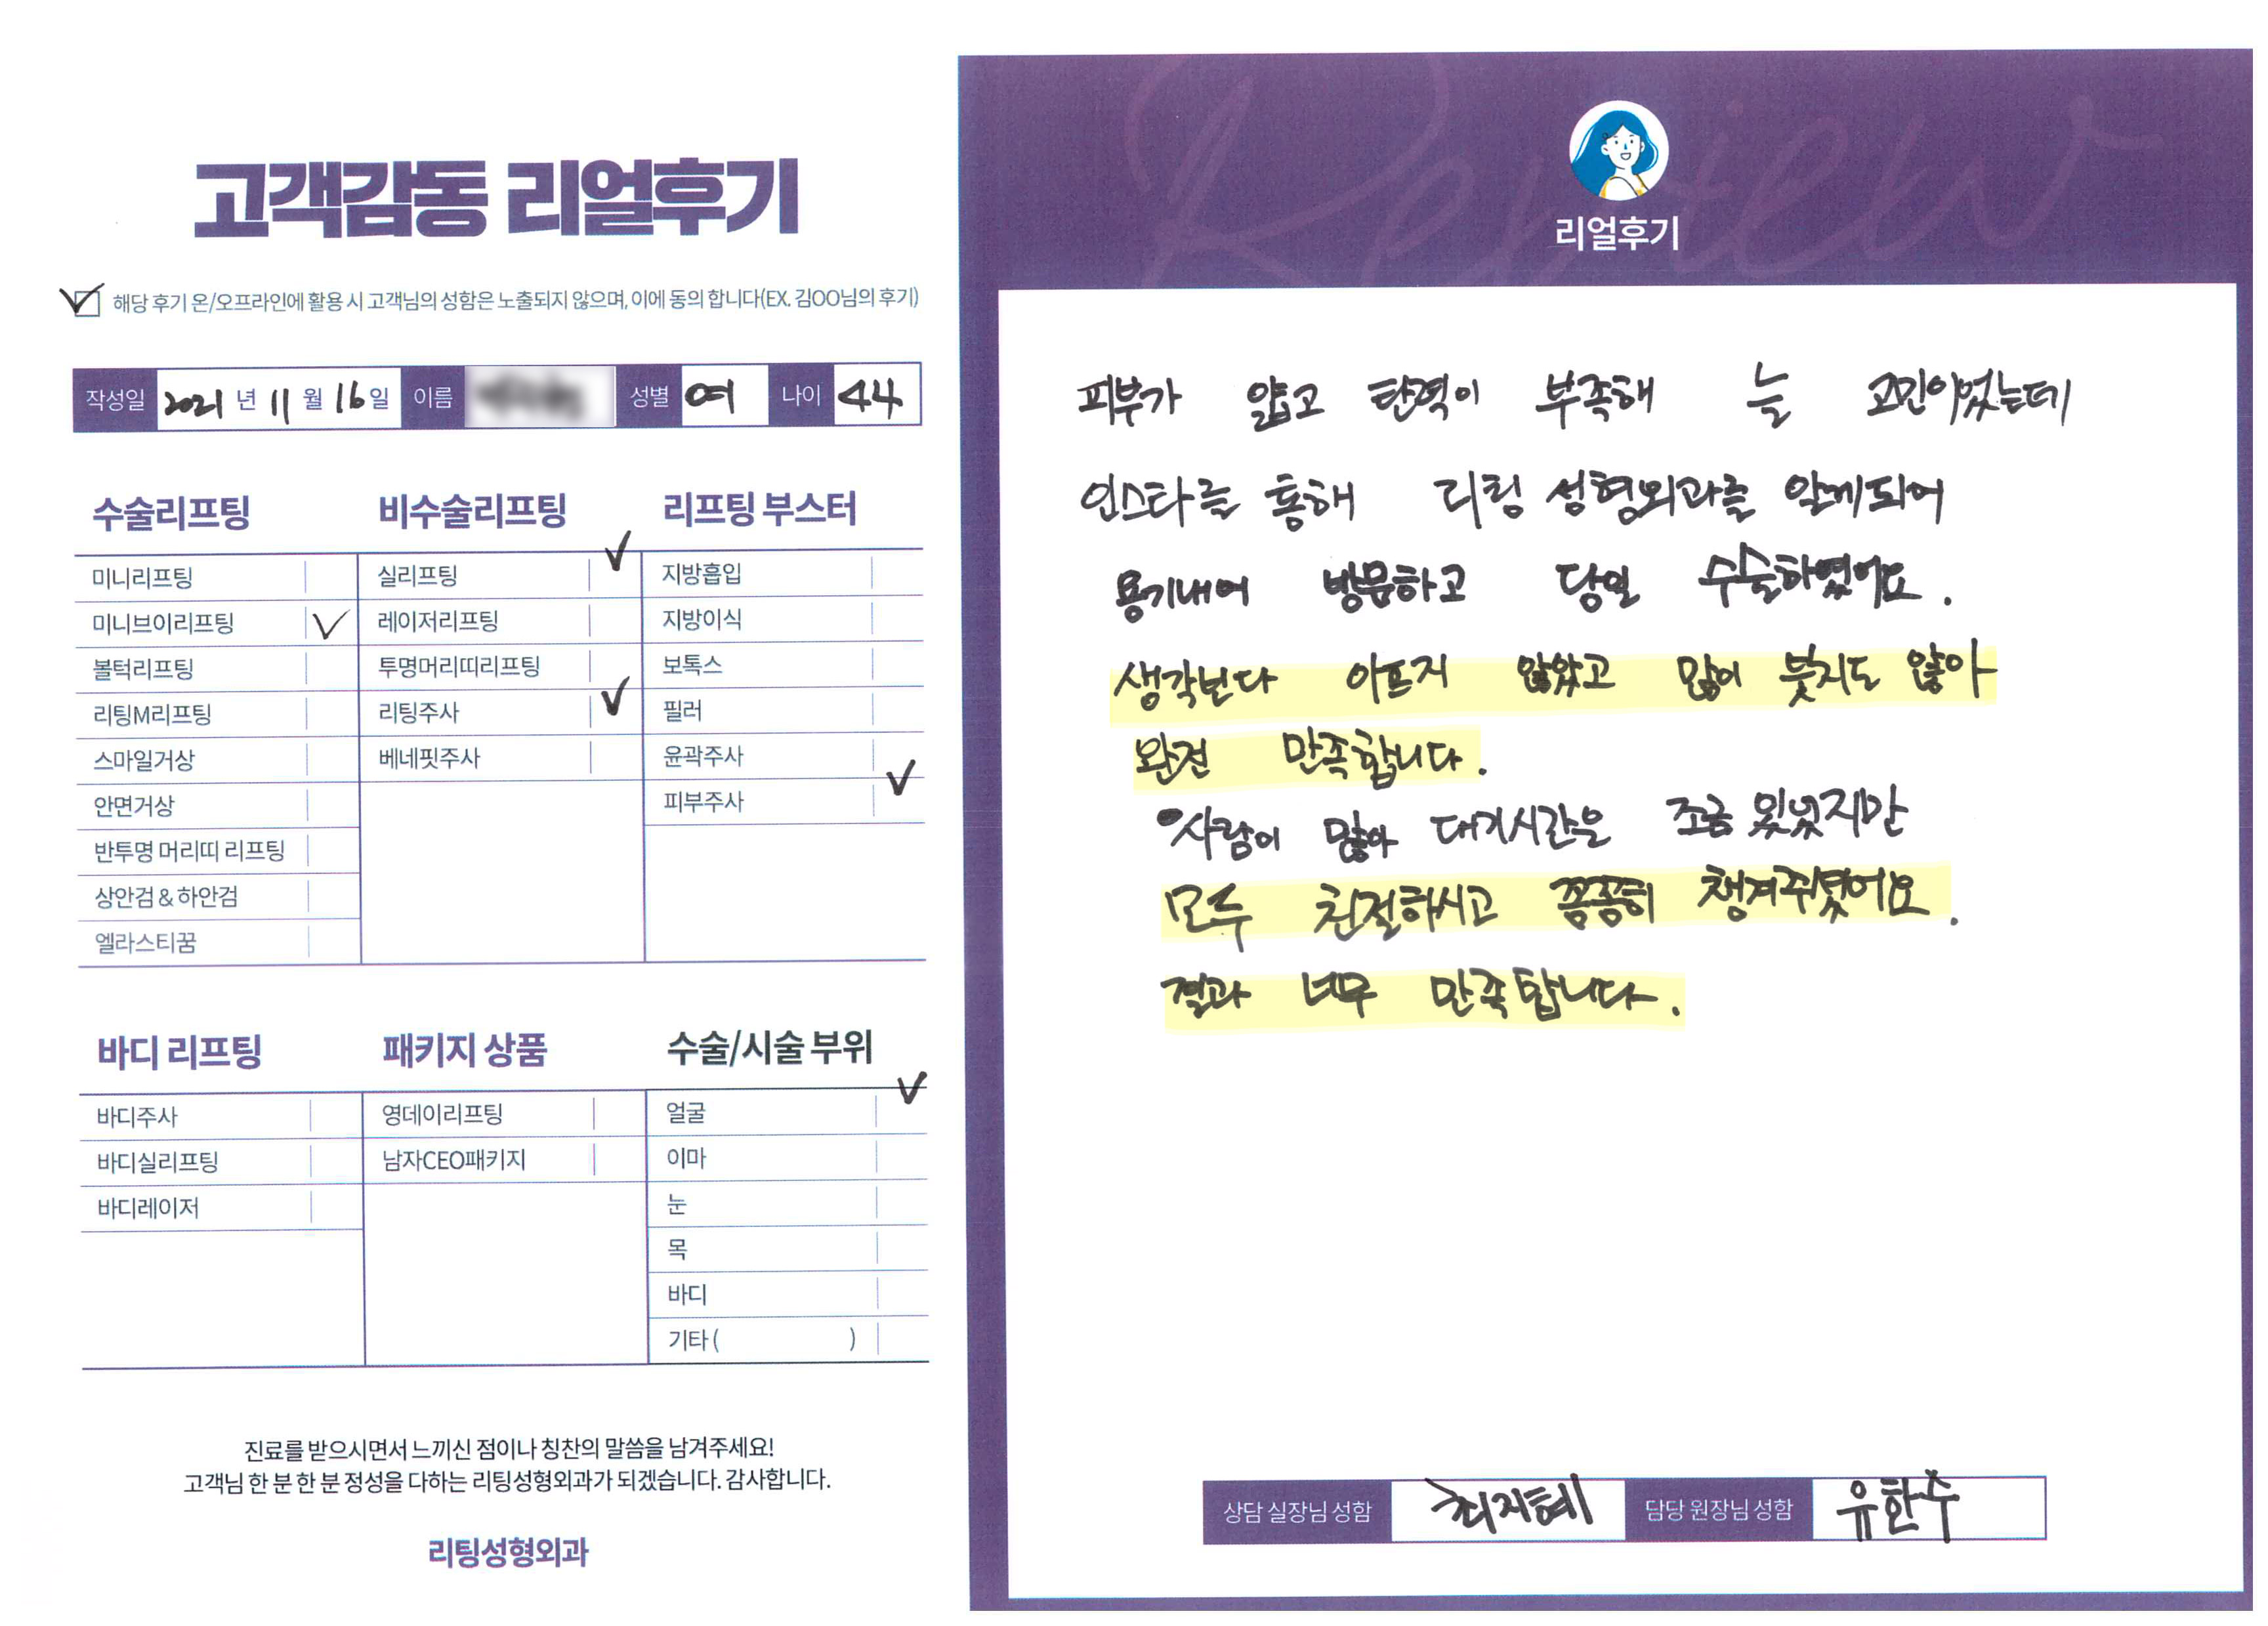 고객감동 리얼후기
해당 후기 온/오프라인에 활용 시 고객님의 성함은 노출되지 않으며, 이에 동의 합니다(EX. 김OO님의 후기)
작성일 2021 년 11 월 16 일 이름 성별 여 나이 44
수술리프팅
미니리프팅
미니브이리프팅
볼턱리프팅
리팅M리프팅
스마일거상
안면거상
반투명 머리띠 리프팅
상안검 & 하안검
엘라스티꿈
비수술리프팅
실리프팅
레이저리프팅
투명머리띠리프팅
리팅주사
베네핏주사
리프팅 부스터
지방흡입
지방이식
보톡스
필러
윤곽주사
피부주사
바디 리프팅
바디주사
바디실리프팅
바디레이저
패키지 상품
영데이리프팅
남자CEO패키지
수술/시술 부위
얼굴
이마
눈
목
바디
기타 ( )
진료를 받으시면서 느끼신 점이나 칭찬의 말씀을 남겨주세요!
고객님 한 분 한 분 정성을 다하는 리팅성형외과가 되겠습니다. 감사합니다.
리팅성형외과
Review
리얼후기
피부가 얇고 탄력이 부족해 늘 고민이었는데
인스타를 통해 리팅 성형외과를 알게되어
용기내어 방문하고 당일 수술하였어요.
생각보다 아프지 않았고 많이 붓지도 않아
완전 만족합니다.
사람이 많아 대기시간은 조금 있었지만
모두 친절하시고 꼼꼼히 챙겨주셨어요.
결과 너무 만족합니다.
상담 실장님 성함 최지혜 담당 원장님 성함 유한수